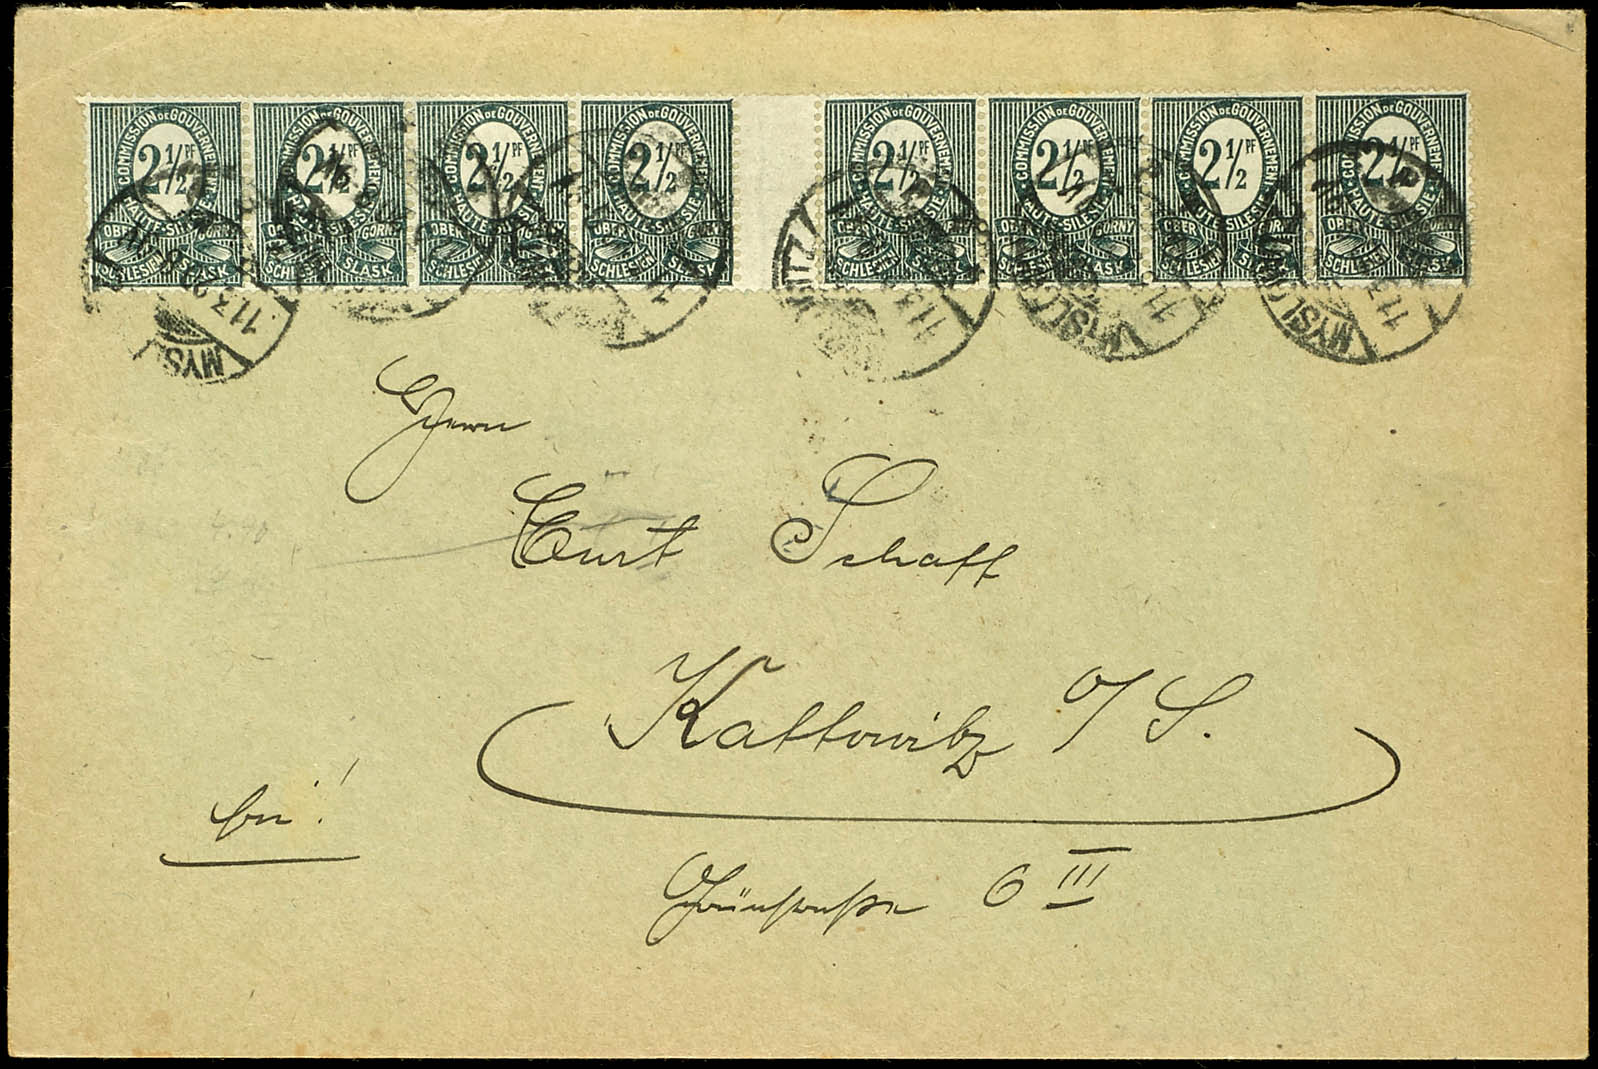 COMMISSION DE GOUVERNEMENT HAUTE-SILESIE 2½ PF OBER SCHLESIEN GORNY SLASK
COMMISSION DE GOUVERNEMENT HAUTE-SILESIE 2½ PF OBER SCHLESIEN GORNY SLASK
COMMISSION DE GOUVERNEMENT HAUTE-SILESIE 2½ PF OBER SCHLESIEN GORNY SLASK
COMMISSION DE GOUVERNEMENT HAUTE-SILESIE 2½ PF OBER SCHLESIEN GORNY SLASK
COMMISSION DE GOUVERNEMENT HAUTE-SILESIE 2½ PF OBER SCHLESIEN GORNY SLASK
COMMISSION DE GOUVERNEMENT HAUTE-SILESIE 2½ PF OBER SCHLESIEN GORNY SLASK
COMMISSION DE GOUVERNEMENT HAUTE-SILESIE 2½ PF OBER SCHLESIEN GORNY SLASK
COMMISSION DE GOUVERNEMENT HAUTE-SILESIE 2½ PF OBER SCHLESIEN GORNY SLASK
Herrn
Curt Schaff
Kattowitz O/S.
Grünstraße 6 III